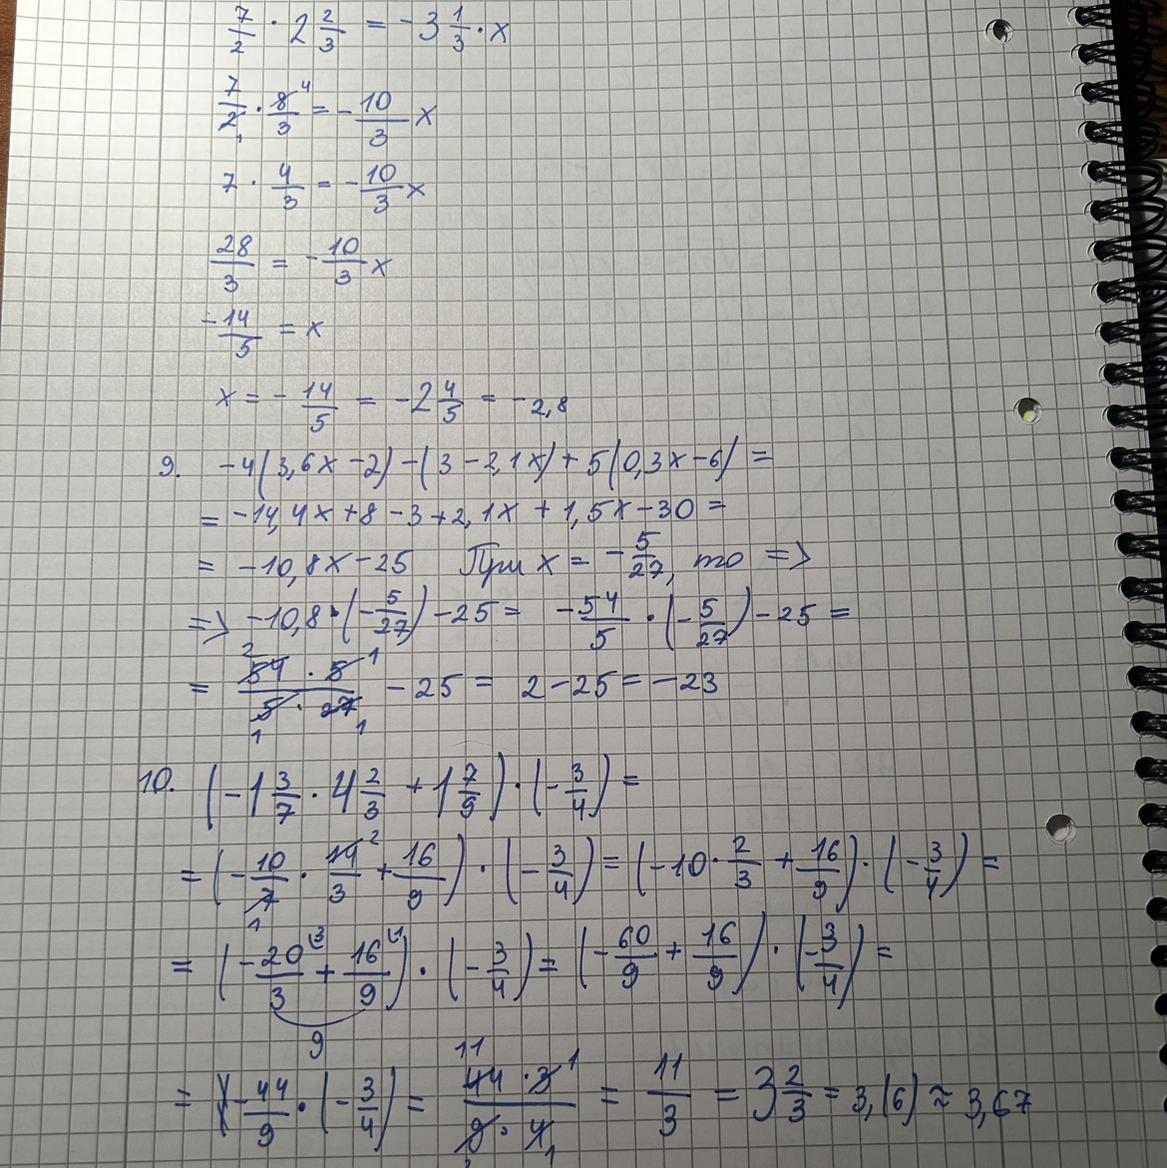 7/2 · 2 2/3 = -3 1/3 · x
7/2 1 · 8/3 4 = -10/3 x
7 · 4/3 = -10/3 x
28/3 = -10/3 x
-14/5 = x
x = -14/5 = -2 4/5 = -2,8
9. -4(3,6x-2)-(3-2,1x)+5(0,3x-6)=
= -14,4x+8-3+2,1x+1,5x-30=
= -10,8x-25 При x = -5/27, то =>
=> -10,8·(-5/27)-25= -54/5·(-5/27)-25=
= 54 2 · 5 1 / 5 1 · 27 1 - 25 = 2-25=-23
10. (-1 3/7 · 4 2/3 + 1 7/9)·(-3/4)=
= (-10/7 1 · 14 2/3 + 16/9)·(-3/4)=(-10·2/3+16/9)·(-3/4)=
= (-20/3 (3 + 16/9 (1)·(-3/4)=(-60/9+16/9)·(-3/4)=
9
= -44/9·(-3/4)= 44 11 · 3 1 / 9 · 4 1 = 11/3 = 3 2/3 = 3,(6) ≈ 3,67